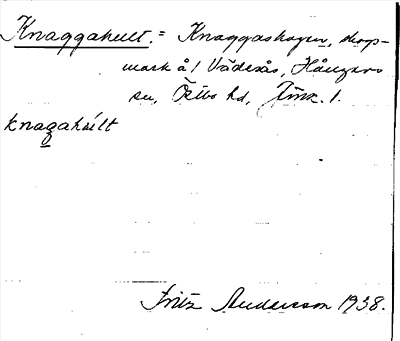 Knaggahult. = Knaggaskogen, skog-
mark å 1 Väderås, Hångers
sn, Östbo hd, Jönk. l.
knagahúlt
Fritz Andersson 1938.